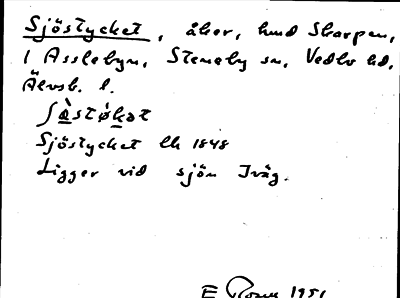 Sjöstycket, åker, hmd Skarpen,
i Asslebyn, Steneby sn, Vedbo hd,
Älvsb. l.
Sjöstycket lk 1848
Ligger vid sjön Iväg.
E 1951